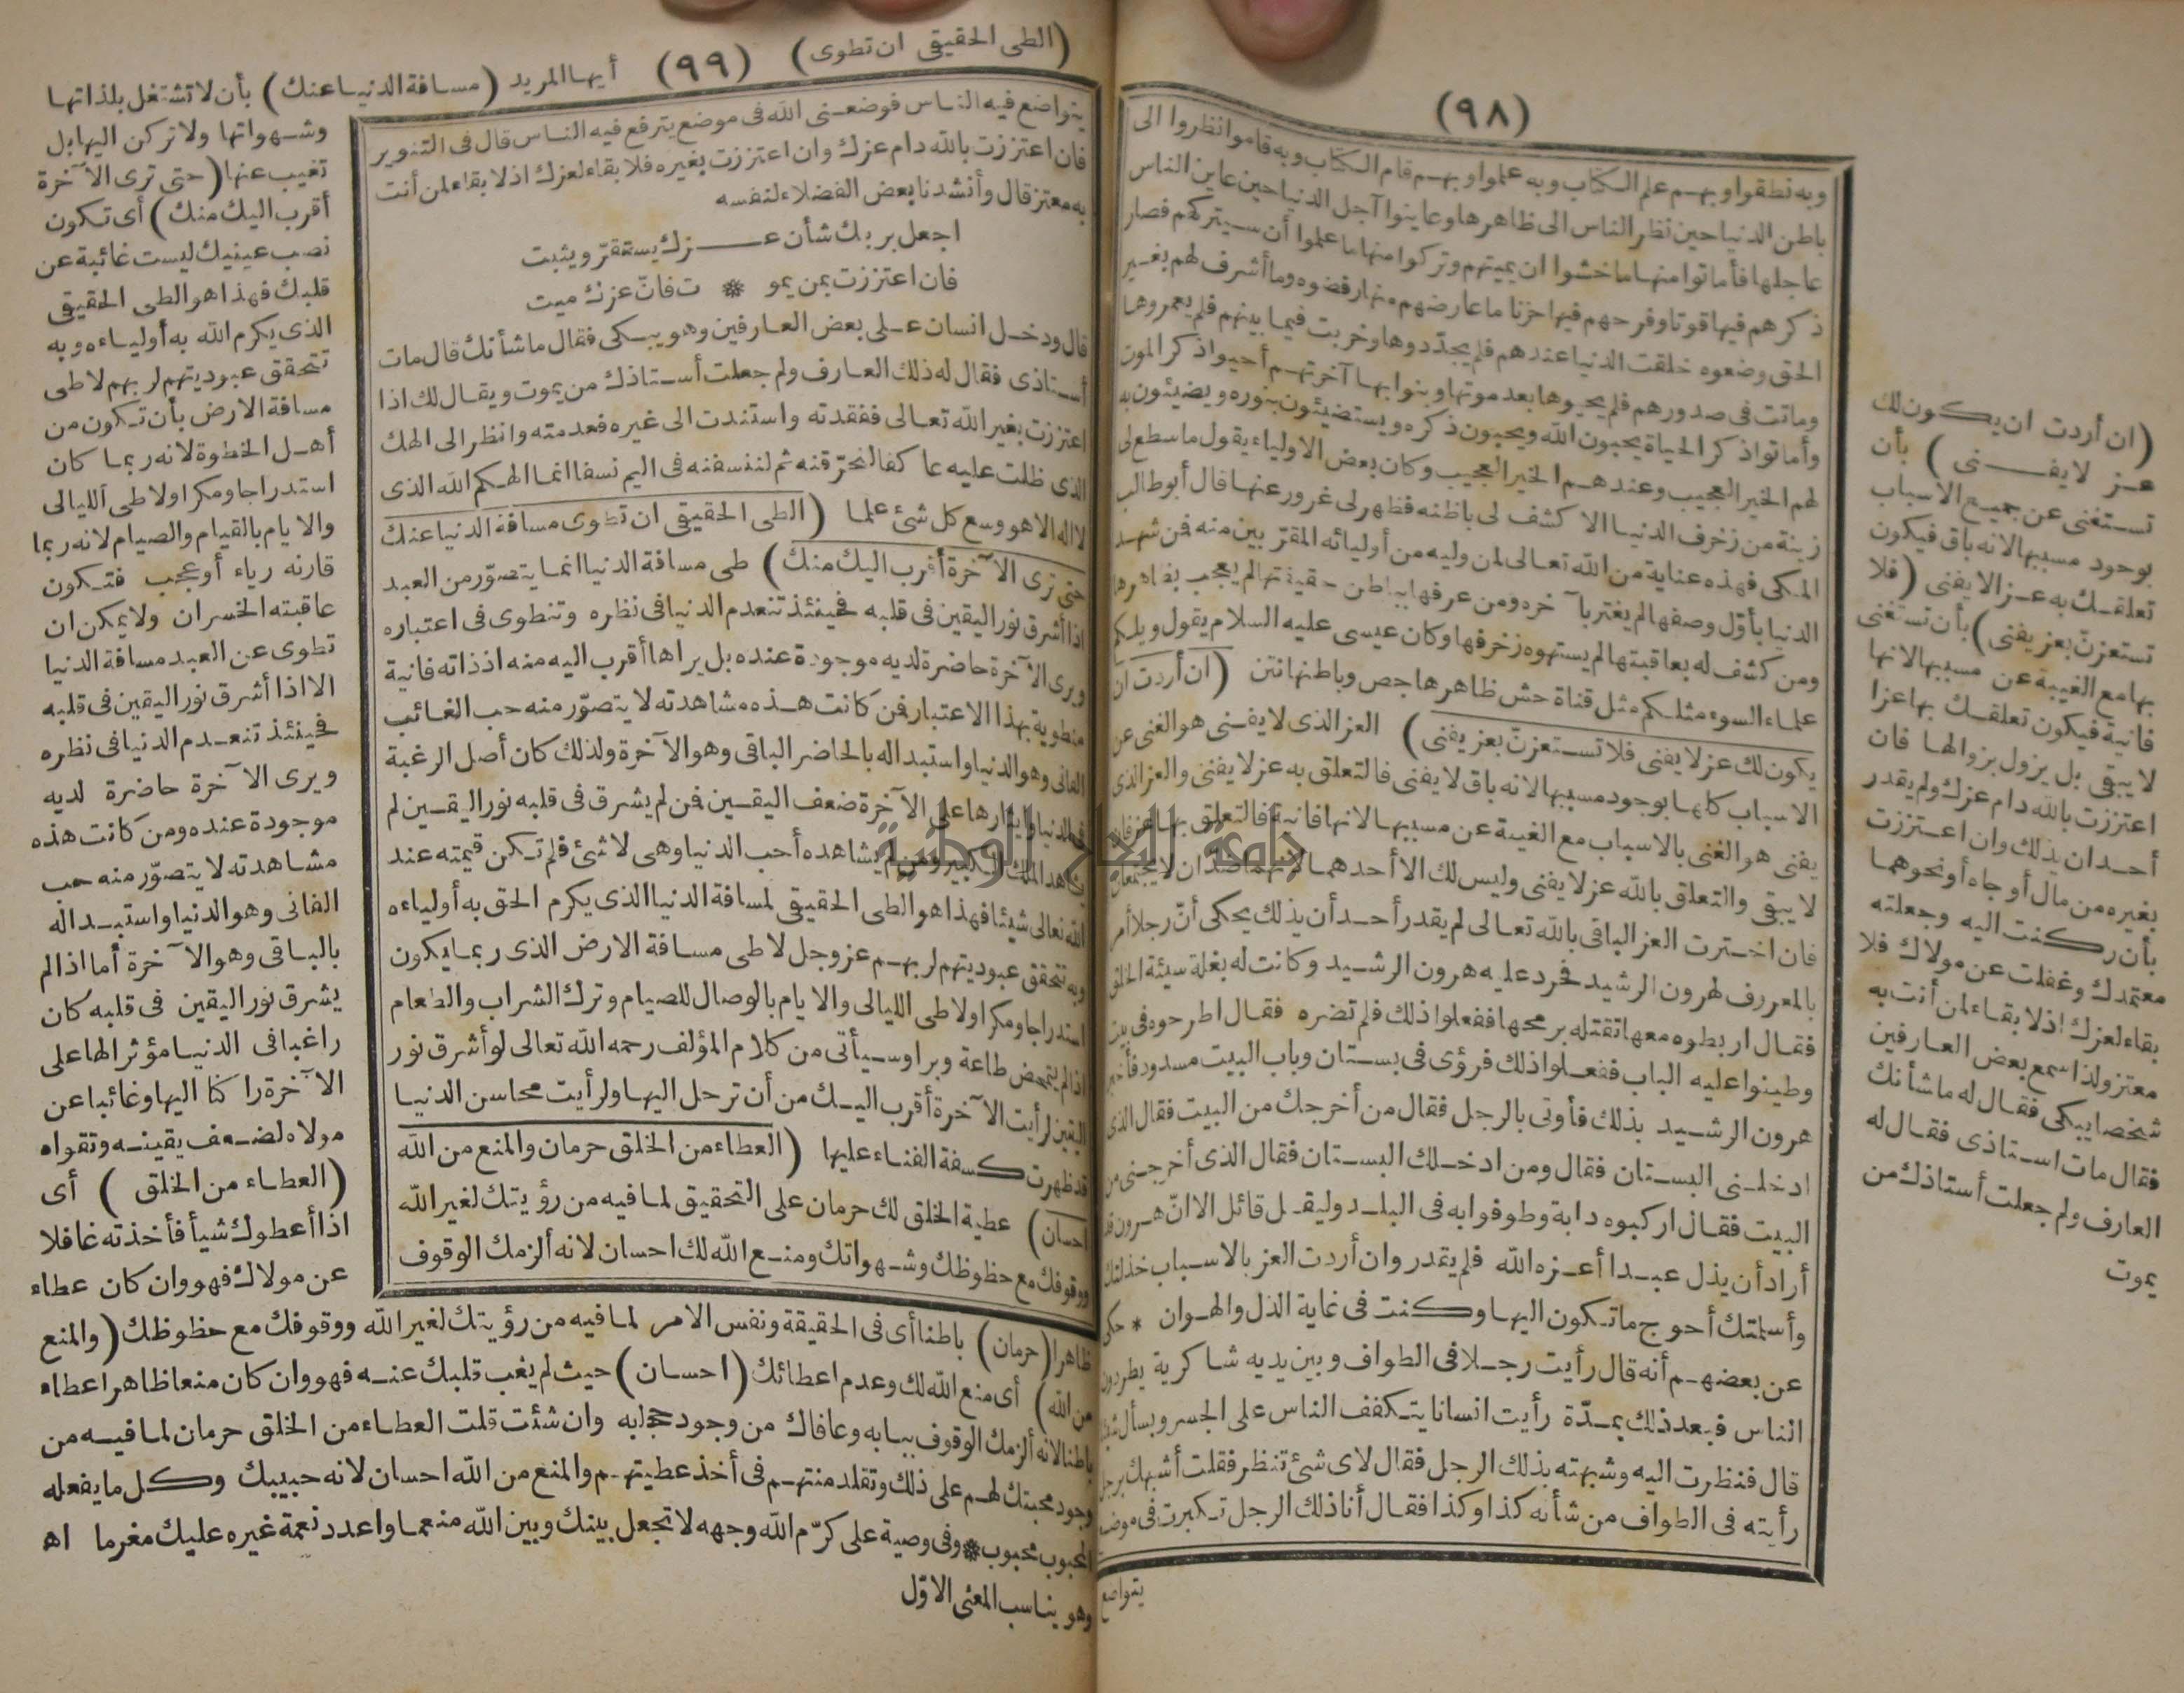 (٩٨)
وبه نطقوا وبهم علم الكتاب وبه علموا وبهم قام الكتاب وبه قاموا نظروا الى
باطن الدنيا حين نظر الناس الى ظاهرها وعاينوا آجل الدنيا حين عاين الناس
عاجلها فأماتوا منها ما خشوا ان يميتهم وتركوا منها ما علموا أن سيتركهم فصار
ذكرهم فيها فوتا وفرحهم فيها حزنا ما عارضهم منها رفضوه وما أشرف لهم بغير
الحق وضعوه خلقت الدنيا عندهم فلم يجددوها وخربت فيما بينهم فلم يعمروها
وماتت فى صدورهم فلم يحيوها بعد موتها وبنوا بها آخرتهم أحيوا ذكر الموت
وأماتوا ذكر الحياة يحبون الله ويحبون ذكره ويستضيئون بنوره ويضيئون به
لهم الخير العجيب وعندهم الخير العجيب وكان بعض الاولياء يقول ما سطع لى
زينة من زخرف الدنيا الا كشف لى باطنه فظهر لى غرور عنها قال أبو طالب
المكى فهذه عناية من الله تعالى لمن وليه من أوليائه المقربين منه فمن شهد
الدنيا بأول وصفها لم يغتر بآخره ومن عرفها بباطن حقيقتها لم يعجب بظاهرها
ومن كشف له بعاقبتها لم يستهوه زخرفها وكان عيسى عليه السلام يقول ويلكم
علماء السوء مثلكم مثل قناة حش ظاهرها جص وباطنها نتن (ان أردت ان
يكون لك عز لا يفنى فلا تستعزنّ بعز يفنى) العز الذى لا يفنى هو الغنى عن
الاسباب كلها بوجود مسببها لانه باق لا يفنى فالتعلق به عز لا يفنى والعز الذى
يفنى هو الغنى بالاسباب مع الغيبة عن مسببها لانها فانية فالتعلق بها عز فان
لا يبقى والتعلق بالله عز لا يفنى وليس لك الا أحدهما لانهما ضدان لا يجتمعان
فان اخترت العز الباقى بالله تعالى لم يقدر أحد أن يذلك يحكى أنّ رجلا أمر
بالمعروف لهرون الرشيد فحرد عليه هرون الرشيد وكانت له بغلة سيئة الخلق
فقال اربطوه معها تقتله برمحها ففعلوا ذلك فلم تضره فقال اطرحوه فى بيت
وطينوا عليه الباب ففعلوا ذلك فرؤى فى بستان وباب البيت مسدود فأخبر
هرون الرشيد بذلك فأوتى بالرجل فقال من أخرجك من البيت فقال الذى
ادخلنى البستان فقال ومن ادخلك البستان فقال الذى أخرجنى من
البيت فقال اركبوه دابة وطوفوا به فى البلد وليقل قائل الا انّ هرون قد
أراد أن يذل عبدا أعزه الله فلم يقدر وان أردت العز بالاسباب خذلتك
وأسلمتك أحوج ما تكون اليها وكنت فى غاية الذل والهوان * حكى
عن بعضهم أنه قال رأيت رجلا فى الطواف وبين يديه شاكرية يطردون
الناس فبعد ذلك بمدّة رأيت انسانا يتكفف الناس على الجسر ويسأل شيأ
قال فنظرت اليه وشبهته بذلك الرجل فقال لاى شئ تنظر فقلت أشبهك برجل
رأيته فى الطواف من شأنه كذا وكذا فقال أنا ذلك الرجل تكبرت فى موضع
يتواضع
(ان أردت ان يكون لك
عز لا يفنى) بأن
تستغنى عن جميع الاسباب
بوجود مسببها لانه باق فيكون
تعلقك به عز الا يفنى (فلا
تستعزنّ بعز يفنى) بأن تستغنى
بها مع الغيبة عن مسببها لانها
فانية فيكون تعلقك بها عزا
لا يبقى بل يزول بزوالها فان
اعتززت بالله دام عزك ولم يقدر
أحد ان يذلك وان اعتززت
بغيره من مال أو جاه أو نحوهما
بأن ركنت اليه وجعلته
معتمدك وغفلت عن مولاك فلا
بقاء لعزك اذ لا بقاء لمن أنت به
معتز ولذا سمع بعض العارفين
شخصا يبكى فقال له ما شأنك
فقال مات استاذى فقال له
العارف ولم جعلت أستاذك من
يموت
(الطى الحقيقى ان تطوى) (٩٩) أيها المريد (مسافة الدنيا عنك) بأن لا تشتغل بلذاتها
يتواضع فيه الناس فوضعنى الله فى موضع يترفع فيه الناس قال فى التنوير
فان اعتززت بالله دام عزك وان اعتززت بغيره فلا بقاء لعزك اذ لا بقاء لمن أنت
به معتز قال وأنشدنا بعض الفضلاء لنفسه
اجعل بربك شأن عزك يستقرّ ويثبت
فان اعتززت بمن يمو * ت فانّ عزك ميت
قال ودخل انسان على بعض العارفين وهو يبكى فقال ما شأنك قال مات
أستاذى فقال له ذلك العارف ولم جعلت أستاذك من يموت ويقال لك اذا
اعتززت بغير الله تعالى ففقدته واستندت الى غيره فعدمته وانظر الى الهك
الذى ظلت عليه عاكفا لنحرّقنه ثم لننسفنه فى اليم نسفا انما الهكم الله الذى
لا اله الا هو وسع كل شئ علما (الطى الحقيقى ان تطوى مسافة الدنيا عنك
حتى ترى الآخرة أقرب اليك منك) طى مسافة الدنيا انما يتصوّر من العبد
اذا أشرق نور اليقين فى قلبه فحينئذ تنعدم الدنيا فى نظره وتنطوى فى اعتباره
ويرى الآخرة حاضرة لديه موجودة عنده بل يراها أقرب اليه منه اذ ذاته فانية
منطوية بهذا الاعتبار فمن كانت هذه مشاهدته لا يتصوّر منه حب الغائب
الفانى وهو الدنيا واستبداله بالحاضر الباقى وهو الآخرة ولذلك كان أصل الرغبة
فى الدنيا وايثارها على الآخرة ضعف اليقين فمن لم يشرق فى قلبه نور اليقين لم
يشاهد الملك الكبير ومن لم يشاهده أحب الدنيا وهى لا شئ فلم تكن قيمته عند
الله تعالى شيئا فهذا هو الطى الحقيقى لمسافة الدنيا الذى يكرم الحق به أولياءه
وبه تتحقق عبوديتهم لربهم عز وجل لا طى مسافة الارض الذى ربما يكون
استدراجا ومكرا ولا طى الليالى والايام بالوصال للصيام وترك الشراب والطعام
اذا لم يتمحض طاعة وبرا وسيأتى من كلام المؤلف رحمه الله تعالى لو أشرق نور
اليقين لرأيت الآخرة أقرب اليك من أن ترحل اليها ولرأيت محاسن الدنيا
قد ظهرت كسفة الفناء عليها (العطاء من الخلق حرمان والمنع من الله
احسان) عطية الخلق لك حرمان على التحقيق لما فيه من رؤيتك لغير الله
ووقوفك مع حظوظك وشهواتك ومنع الله لك احسان لانه ألزمك الوقوف
وشهواتها ولا تركن اليها بل
تغيب عنها (حتى ترى الآخرة
أقرب اليك منك) أى تكون
نصب عينيك ليست غائبة عن
قلبك فهذا هو الطى الحقيقى
الذى يكرم الله به أولياءه وبه
تتحقق عبوديتهم لربهم لا طى
مسافة الارض بأن تكون من
أهل الخطوة لانه ربما كان
استدراجا ومكرا ولا طى الليالى
والايام بالقيام والصيام لانه ربما
قارنه رياء أو عجب فتكون
عاقبته الخسران ولا يمكن ان
تطوى عن العبد مسافة الدنيا
الا اذا أشرق نور اليقين فى قلبه
فحينئذ تنعدم الدنيا فى نظره
ويرى الآخرة حاضرة لديه
موجودة عنده ومن كانت هذه
مشاهدته لا يتصوّر منه حب
الفانى وهو الدنيا واستبداله
بالباقى وهو الآخرة أما اذا لم
يشرق نور اليقين فى قلبه كان
راغبا فى الدنيا مؤثرا لها على
الآخرة راكنا اليها وغائبا عن
مولاه لضعف يقينه وتقواه
(العطاء من الخلق) أى
اذا أعطوك شيأ فأخذته غافلا
عن مولاك فهو وان كان عطاء
ظاهرا (حرمان) باطنا أى فى الحقيقة ونفس الامر لما فيه من رؤيتك لغير الله ووقوفك مع حظوظك (والمنع
من الله) أى منع الله لك وعدم اعطائك (احسان) حيث لم يغب قلبك عنه فهو وان كان منعا ظاهرا عطاء
باطنا لانه ألزمك الوقوف ببابه وعافاك من وجود حجابه وان شئت قلت العطاء من الخلق حرمان لما فيه من
وجود محبتك لهم على ذلك وتقلد منتهم فى أخذ عطيتهم والمنع من الله احسان لانه حبيبك وكل ما يفعله
المحبوب محبوب * وفى وصية على كرّم الله وجهه لا تجعل بينك وبين الله منعما واعدد نعمة غيره عليك مغرما اه
وهو يناسب المعنى الاوّل
جامعة النجاح الوطنية